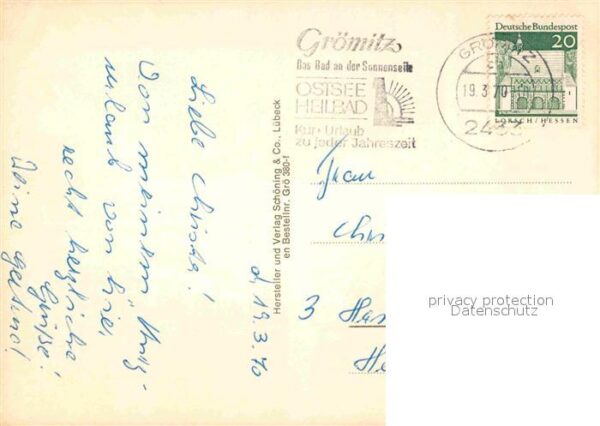 Grömitz
Das Bad an der Sonnenseite
OSTSEE
HEILBAD
Kur + Urlaub
zu jeder Jahreszeit
GRÖMITZ
19.3.70
2433
Deutsche Bundespost
20
LORSCH/HESSEN
d, 19.3.70
Liebe Christa!
Von meinem
urlaub von hier,
recht herzliche
Grüße!
Deine
Hersteller und Verlag Schöning & Co., Lübeck
en Bestellnr. Grö 380-f
Frau
Chris
3 Han
He
privacy protection
Datenschutz